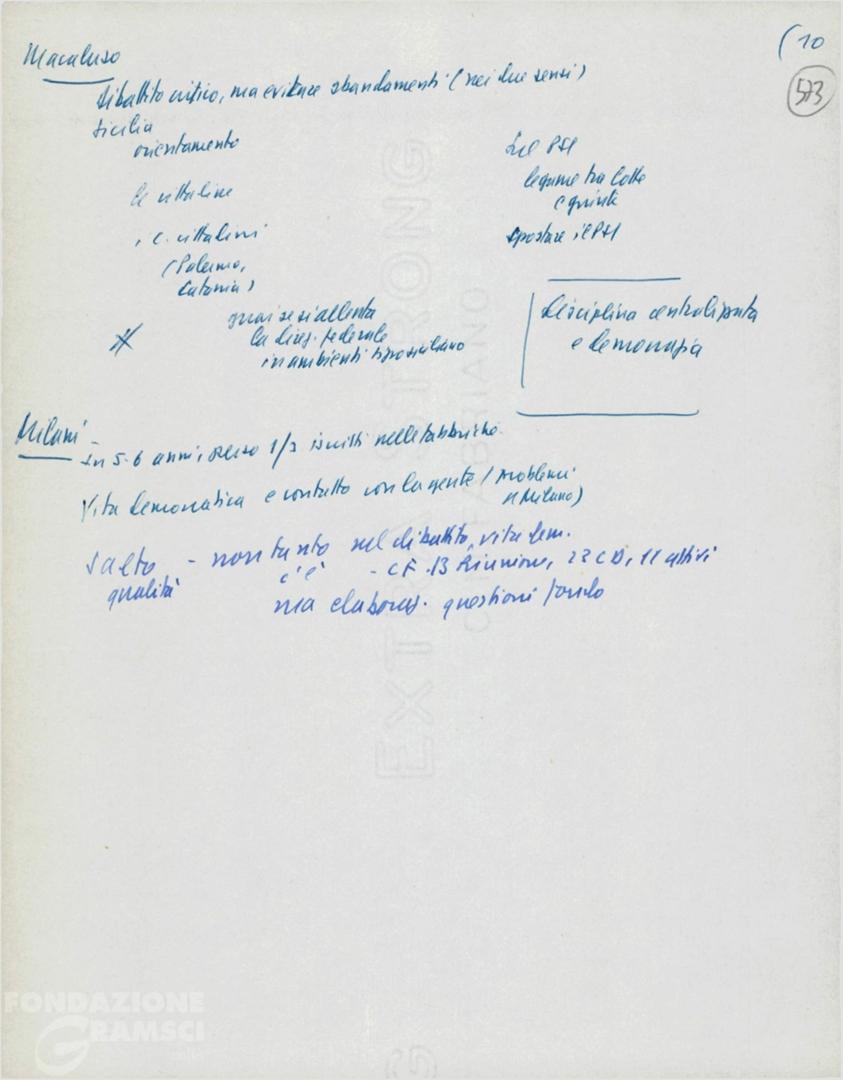 (10
573
Macaluso
dibattito critico, ma evitare sbandamenti (nei due sensi)
Sicilia
orientamento
le cittadine
i C. cittadini
(Palermo,
Catania)
guai se si allenta
la direz. federale
in ambienti tipo siciliano
Sul PSI
legame tra lotte
e giunte
spostare il PSI
disciplina centralizzata
e democrazia
Milani -
In 5-6 anni, perso 1/3 iscritti nelle fabbriche.
Vita democratica e contatto con la gente (problemi
Milano)
salto - non tanto nel dibattito, vita dem.
qualità c'è - CF. 13 Riunioni, 23 CD, 11 attivi
ma elaboraz. questioni fondo
EXTRA STRONG
FABRIANO
FONDAZIONE
GRAMSCI